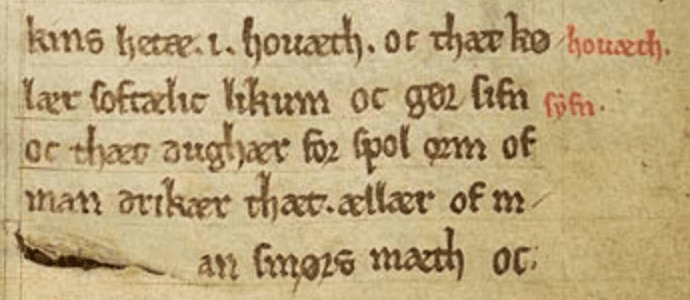 kins hetæ. i. houæth. oc thæt kø houæth.
lær softælic likum oc gør sifn sÿfn.
oc thæt dughær for spol orm of
man drikær thæt. ællær of m
an smørs mæth oc.